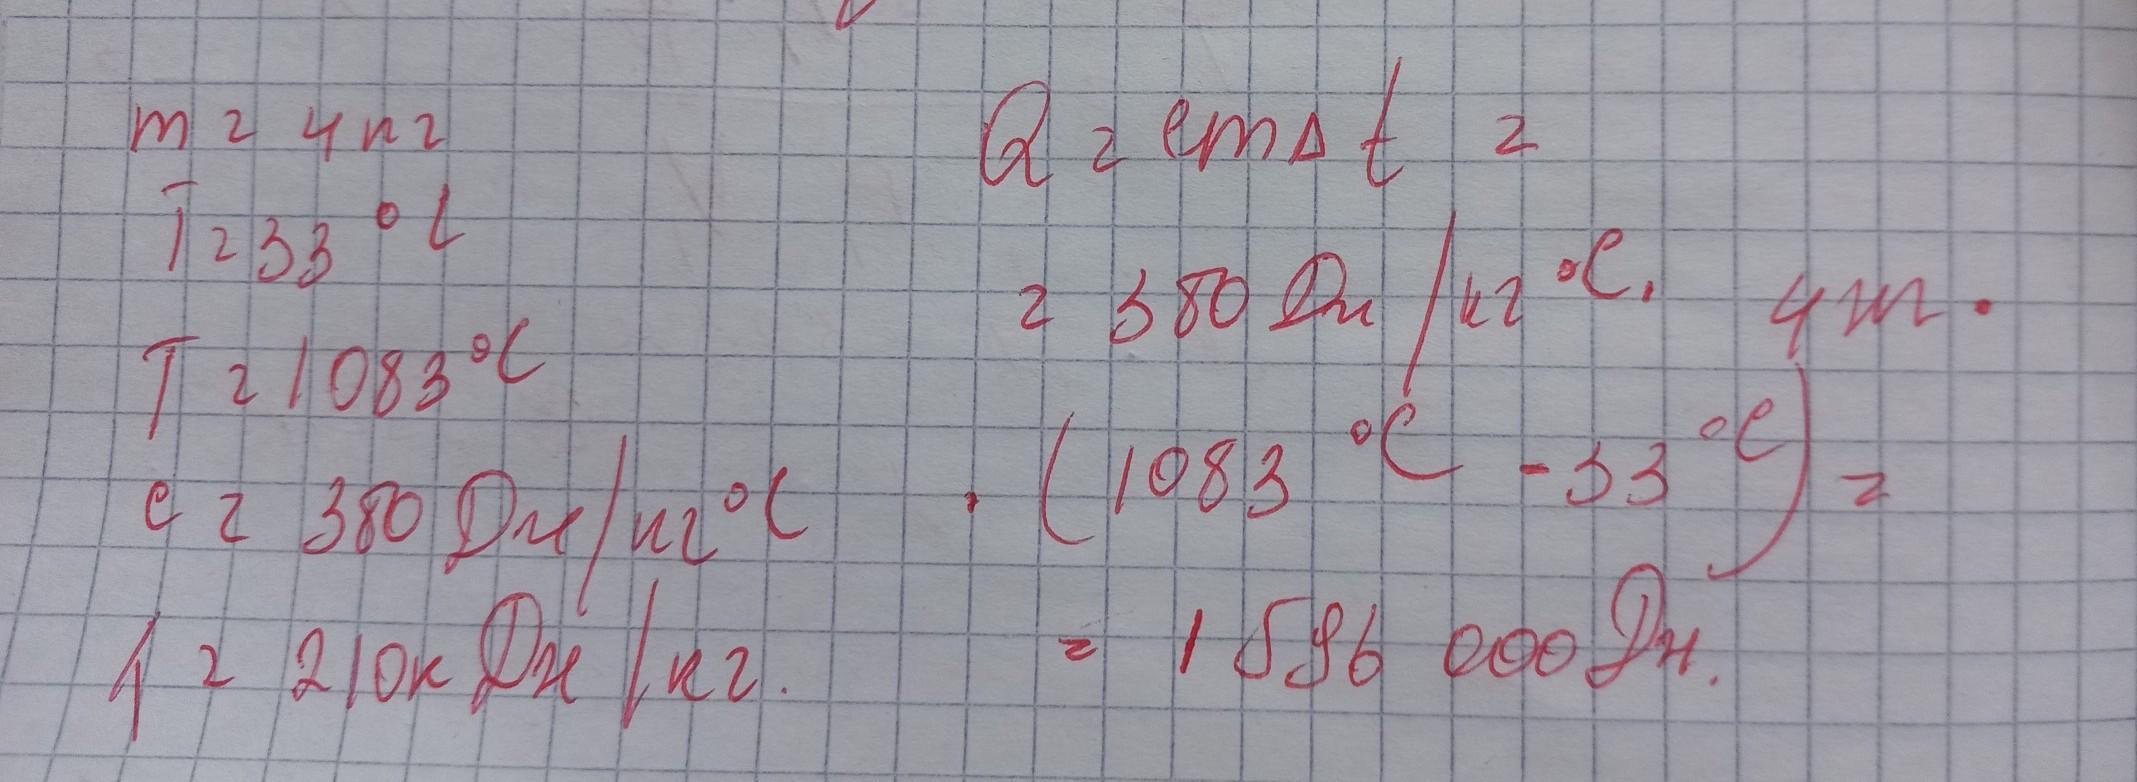 m = 4 кг
T = 33 °C
T = 1083 °C
c = 380 Дж/кг °C
λ = 210 к Дж/кг.
Q = cm Δ t =
= 380 Дж/кг °C. 4 кг.
· (1083 °C - 33 °C) =
= 1 596 000 Дж.